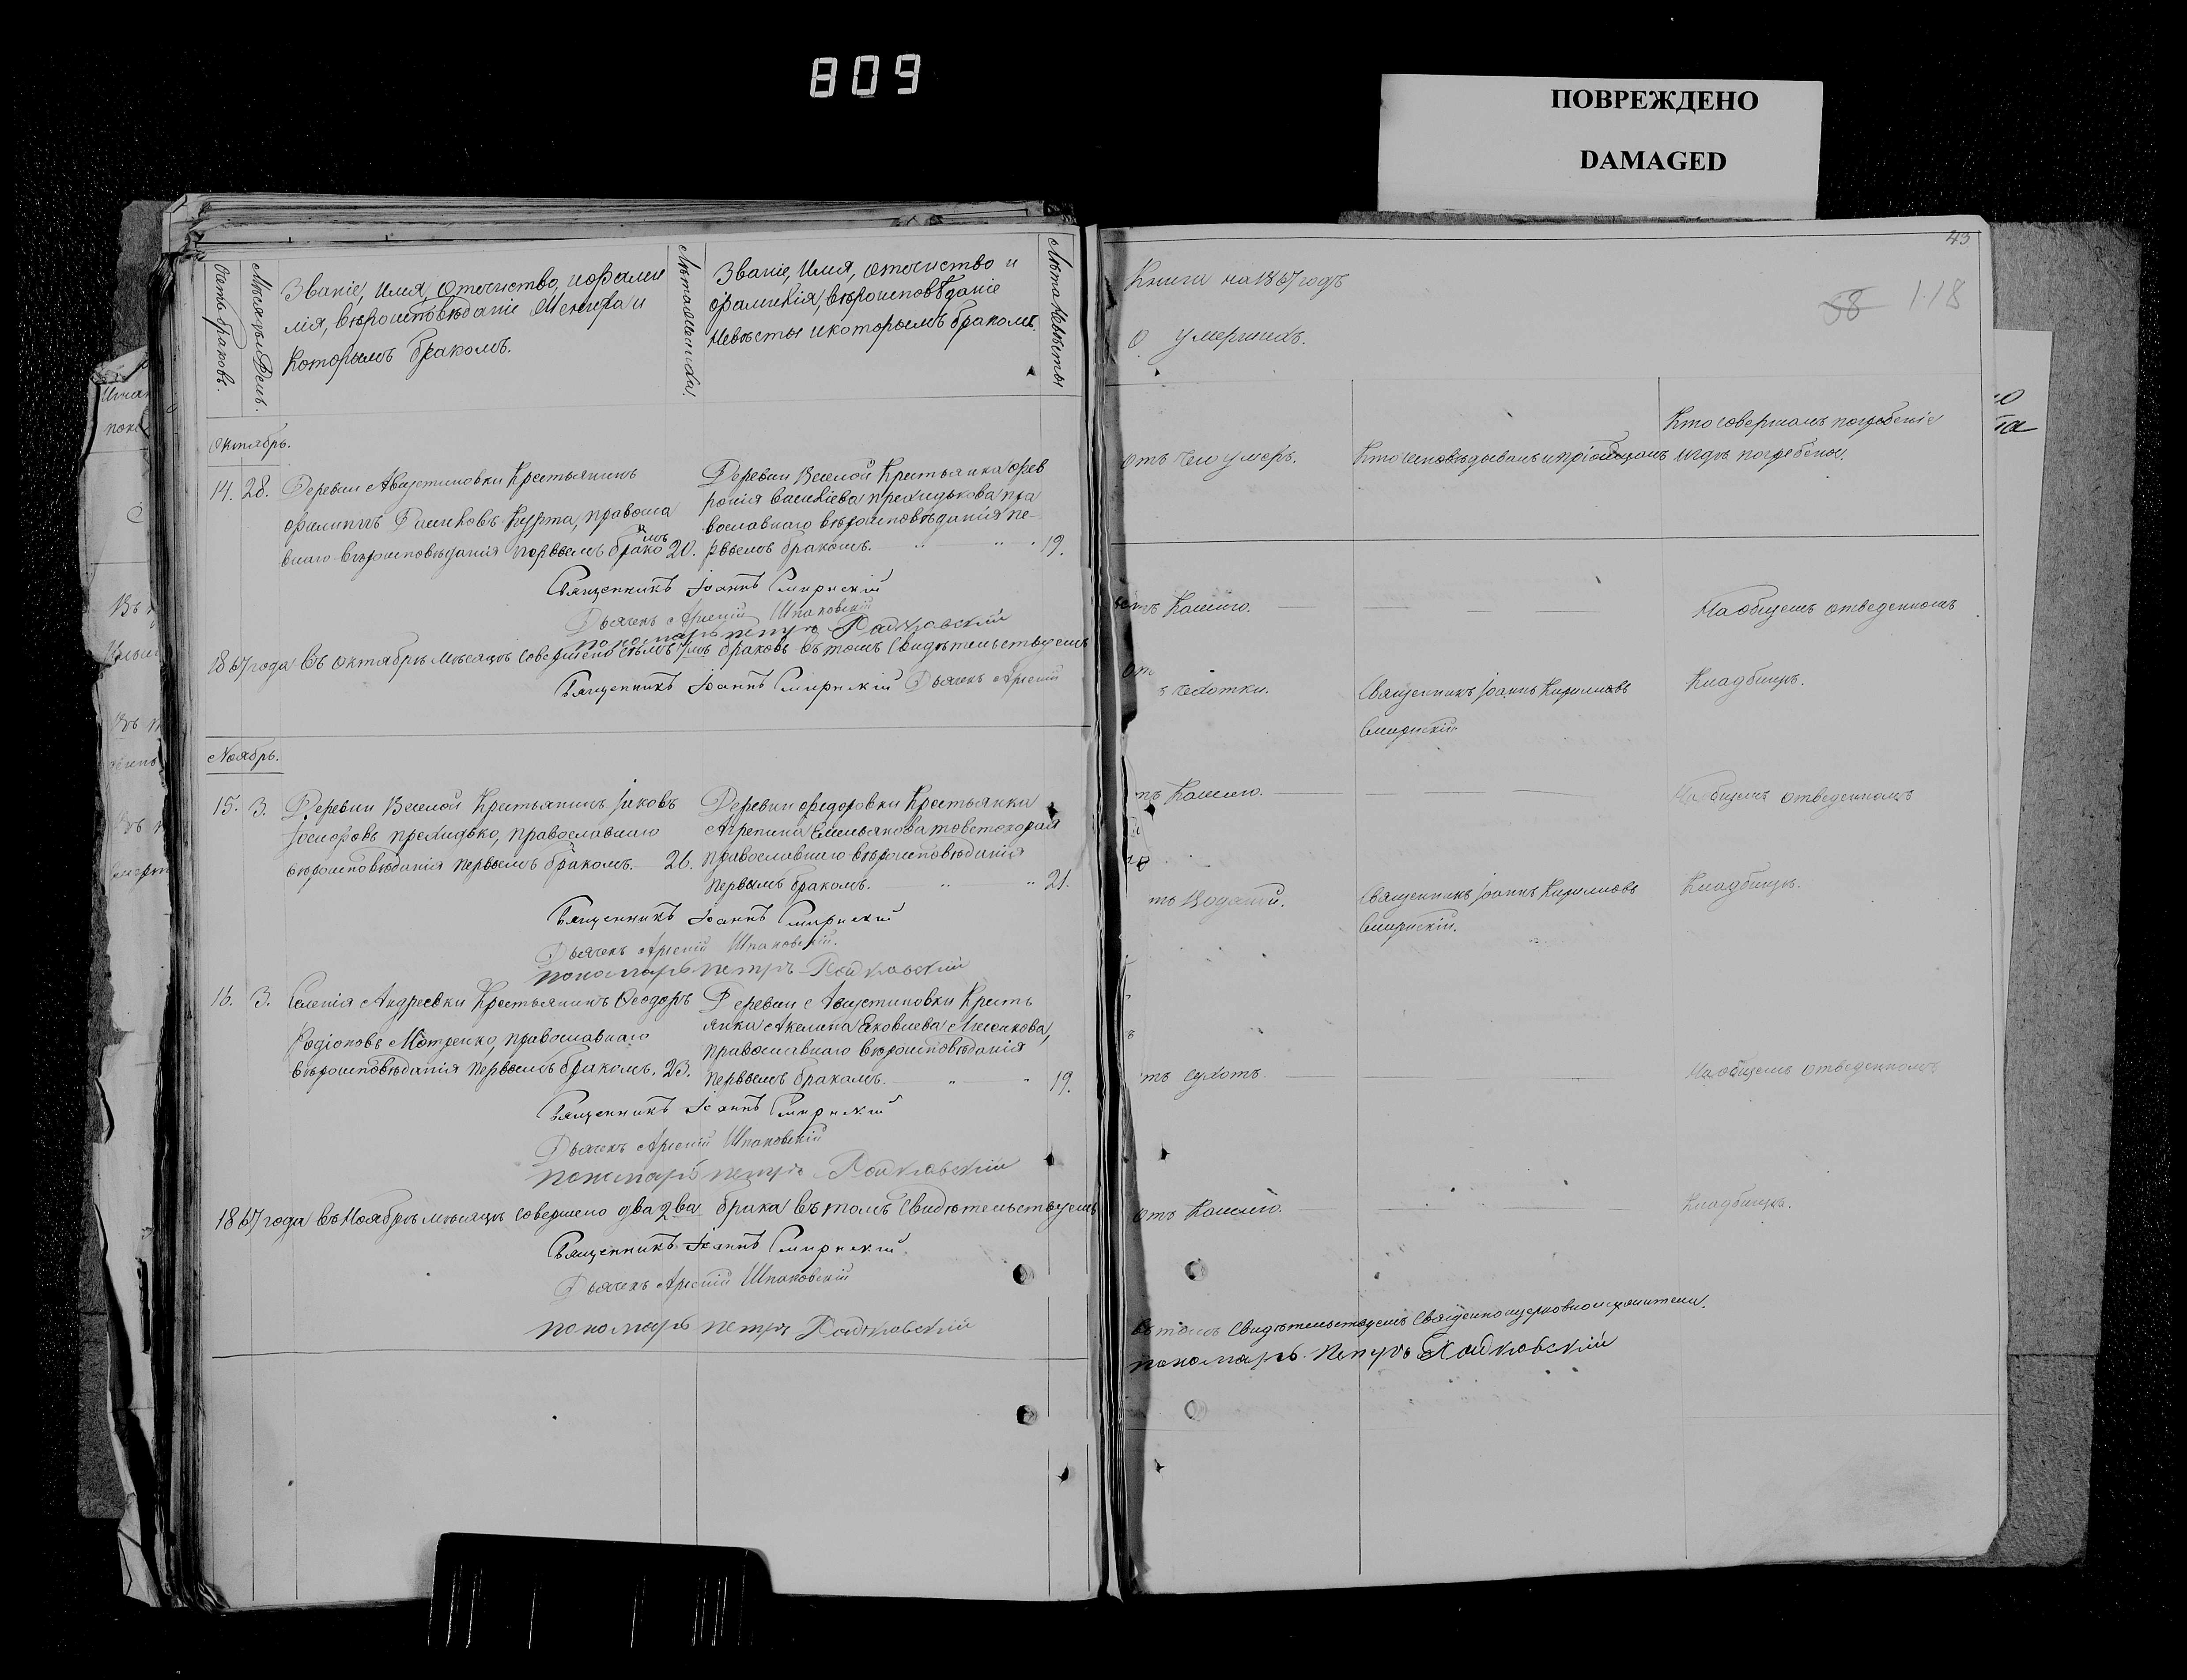 809
ПОВРЕЖДЕНО
DAMAGED
Счетъ браковъ.
Мѣсяцъ и День.
Званіе, Имя, Отечиство, и фами
лія, вѣроисповѣданіе Жениха и
Которымъ бракомъ.
Лѣта жениха.
Званіе, Имя, отечиство и
фамилія, вѣроисповѣданіе
Невѣсты и которымъ бракомъ.
Лѣта Невѣсты
Октябрь.
14. 28. Деревни Августиновки Крестьянинъ
Филиппъ Курта, правосла
внаго вѣроисповѣданія первымъ брако
мъ 20.
Деревни Веселой Крестьянка Фев
ронія Василіева пра
вославнаго вѣроисповѣданія пе-
рвымъ бракомъ. 19.
Священникъ Іоаннъ Смирнскій
Дьячекъ Арсеній Шпаковскій
пономарь петръ
1867 года Въ Октябрѣ мѣсяцѣ совершено семь браковъ въ томъ Свидѣтельствуемъ
Священникъ Іоаннъ Смирнскій Дьячекъ Арсеній
Ноябрь.
15. 3. Деревни Веселой Крестьянинъ Іяковъ
православнаго
вѣроисповѣданія первымъ бракомъ. 26.
Деревни Федоровки Крестьянка
Агрепина Емельянова
православнаго вѣроисповѣданія
первымъ бракомъ. 21.
Священникъ Іоаннъ Смирнскій
Дьячекъ Арсеній Шпаковскій.
пономарь петръ
16. 3. Селенія Андреевки Крестьянинъ Ѳеодоръ
Родіоновъ Мотренко, православнаго
вѣроисповѣданія первымъ бракомъ. 23.
Деревни Августиновки Кресть
янка Акелина Яковлева
православнаго вѣроисповѣданія
первымъ бракомъ. 19.
Священникъ Іоаннъ Смирнскій
Дьячекъ Арсеній Шпаковскій
пономарь петръ
1867 года Въ Ноябрѣ мѣсяцѣ совершено два 2ва брака въ томъ Свидѣтельствуемъ
Священникъ Іоаннъ Смирнскій.
Дьячекъ Арсеній Шпаковскій
пономарь петръ
43
Книги на 1867 годъ
58 118
О умершихъ.
Отъ чего умеръ.
Кто исповѣдывалъ и пріобщалъ
Кто совершалъ погребеніе
и гдѣ погребены.
отъ Кашлю.
На общемъ отведенномъ
чехотки.
Священникъ Іоаннъ Кириловъ
Смирнскій.
Кладбищѣ.
тъ Кашлю.
На общемъ отведенномъ
тъ Водяной.
Священникъ Іоаннъ Кириловъ
Смирнскій.
Кладбищѣ.
тъ сухотъ.
На общемъ отведенномъ
Отъ Кашлю.
Кладбищѣ.
Въ томъ Свидѣтельствуемъ Священноцерковнослужители.
пономарь петръ